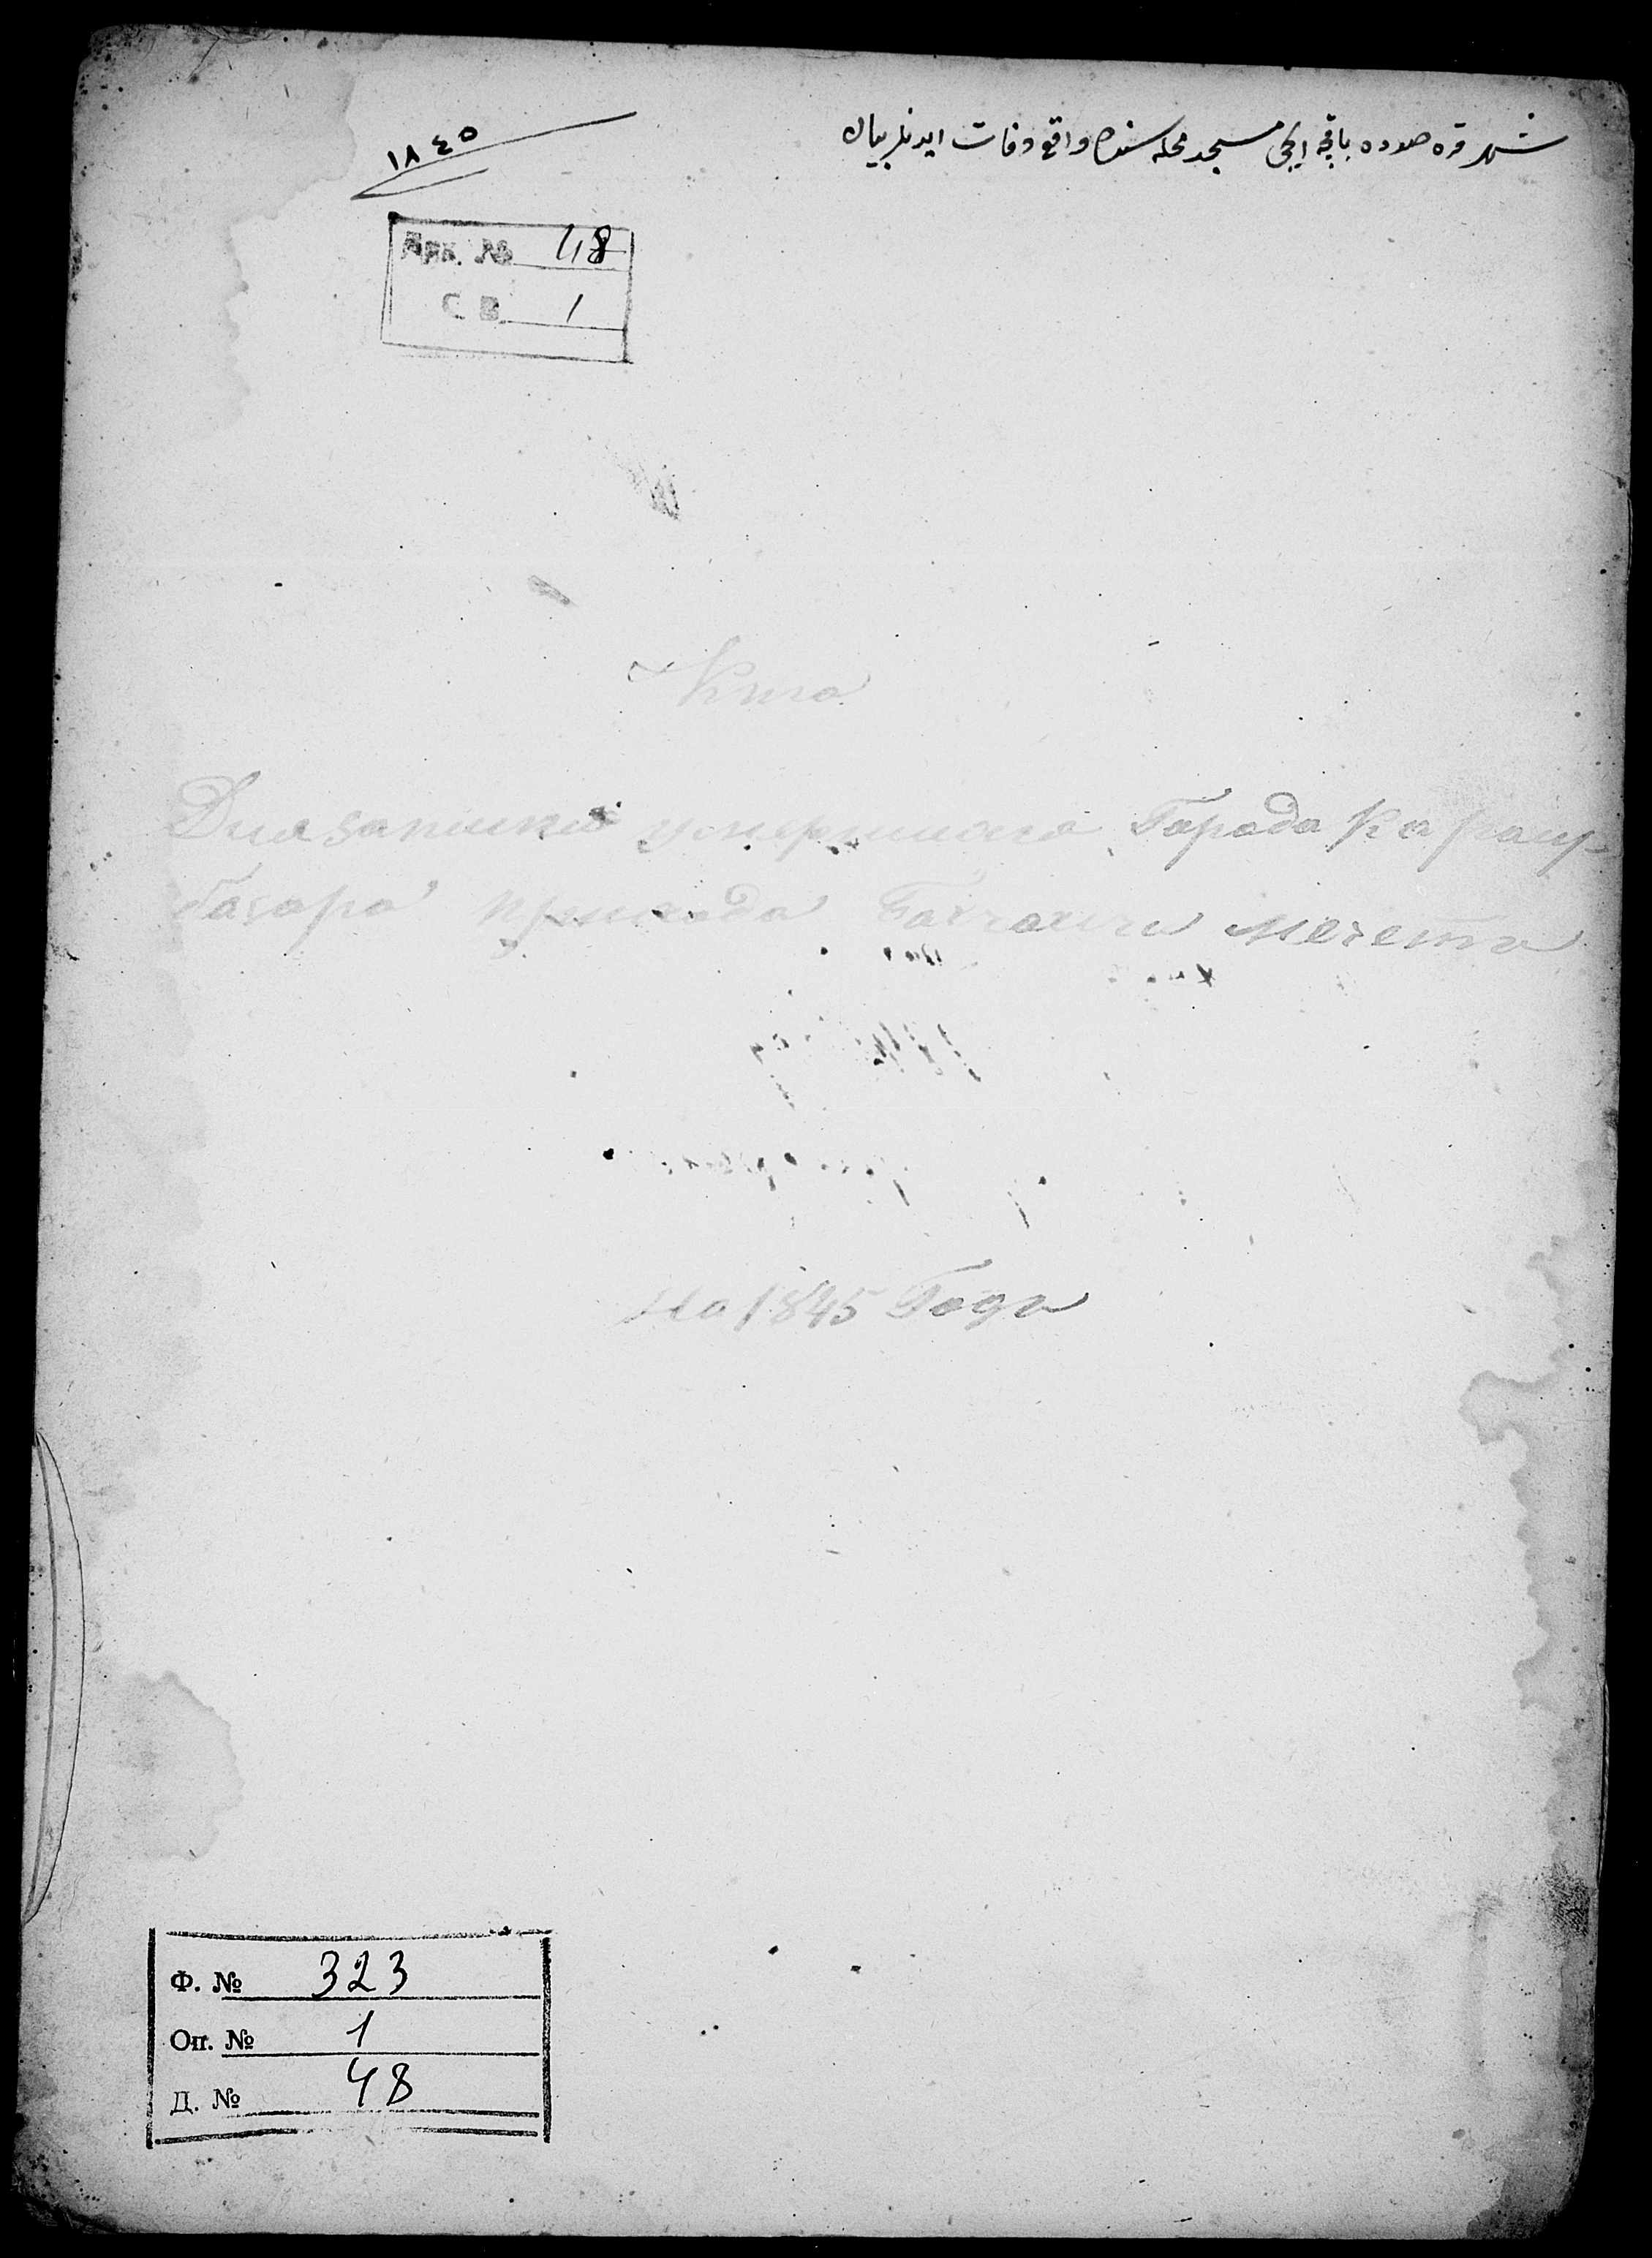 شهر قره صوده باقچه ایچی مسجد محله سنده واقع وفات ایدنلر بیان
١٨٤٥
Арх. № 48
С В 1
Кто
Для записки умершихъ Города Карасу-
базара прихода мечети
На 1845 Годъ
Ф. № 323
Оп. № 1
Д. № 48